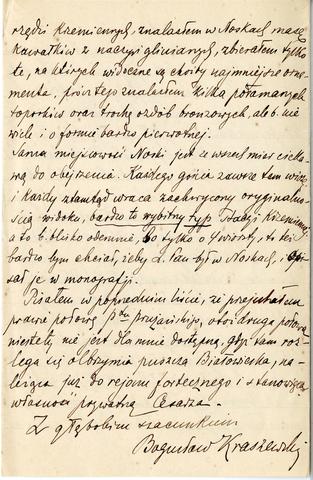 rzędzi krzemiennych, znalazłem w Noskach masę
kawałków z naczyń glinianych, zbierałem tylko
te, na których widoczne są choćby najmniejsze orna-
menta, prócz tego znalazłem kilka połamanych
toporków oraz trochę ozdób bronzowych, ale b. nie
wiele i o formie bardzo pierwotnej.
Sama miejscowość Noski jest ze wszech miar cieka-
wą do obejrzenia. Każdego gościa zawsze tam wiozę
i każdy ztamtąd wraca zachwycony oryginalno-
ścią widoku, bardzo to wybitny typ Stacyi Krzemiennej
a to b. blisko odemnie, bo tylko o 4 wiorsty, to też
bardzo bym chciał, żeby Sz. Pan był w Noskach, i opi-
sał je w monografji.
Pisałem w poprzednim liście, że przejechałem
prawie połowę ptu prużańskiego, otóż druga połowa
niestety nie jest dla mnie dostępną, gdyż tam roz-
lega się olbrzymia puszcza Białowieska, na-
leżąca już do rejonu fortecznego i stanowiąca
własność prywatną Cesarza.
Z głębokim szacunkiem
Bogusław Kraszewski